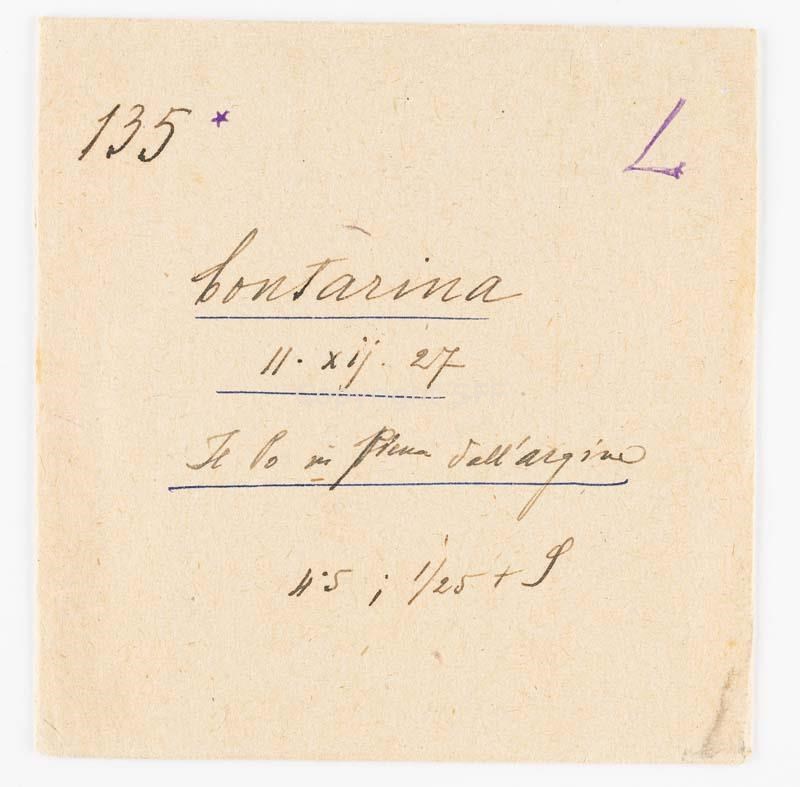 135 * L
Contarina
11. xij. 27
Il Po in Piena dall'argine
4.5 ; 1/25 + S